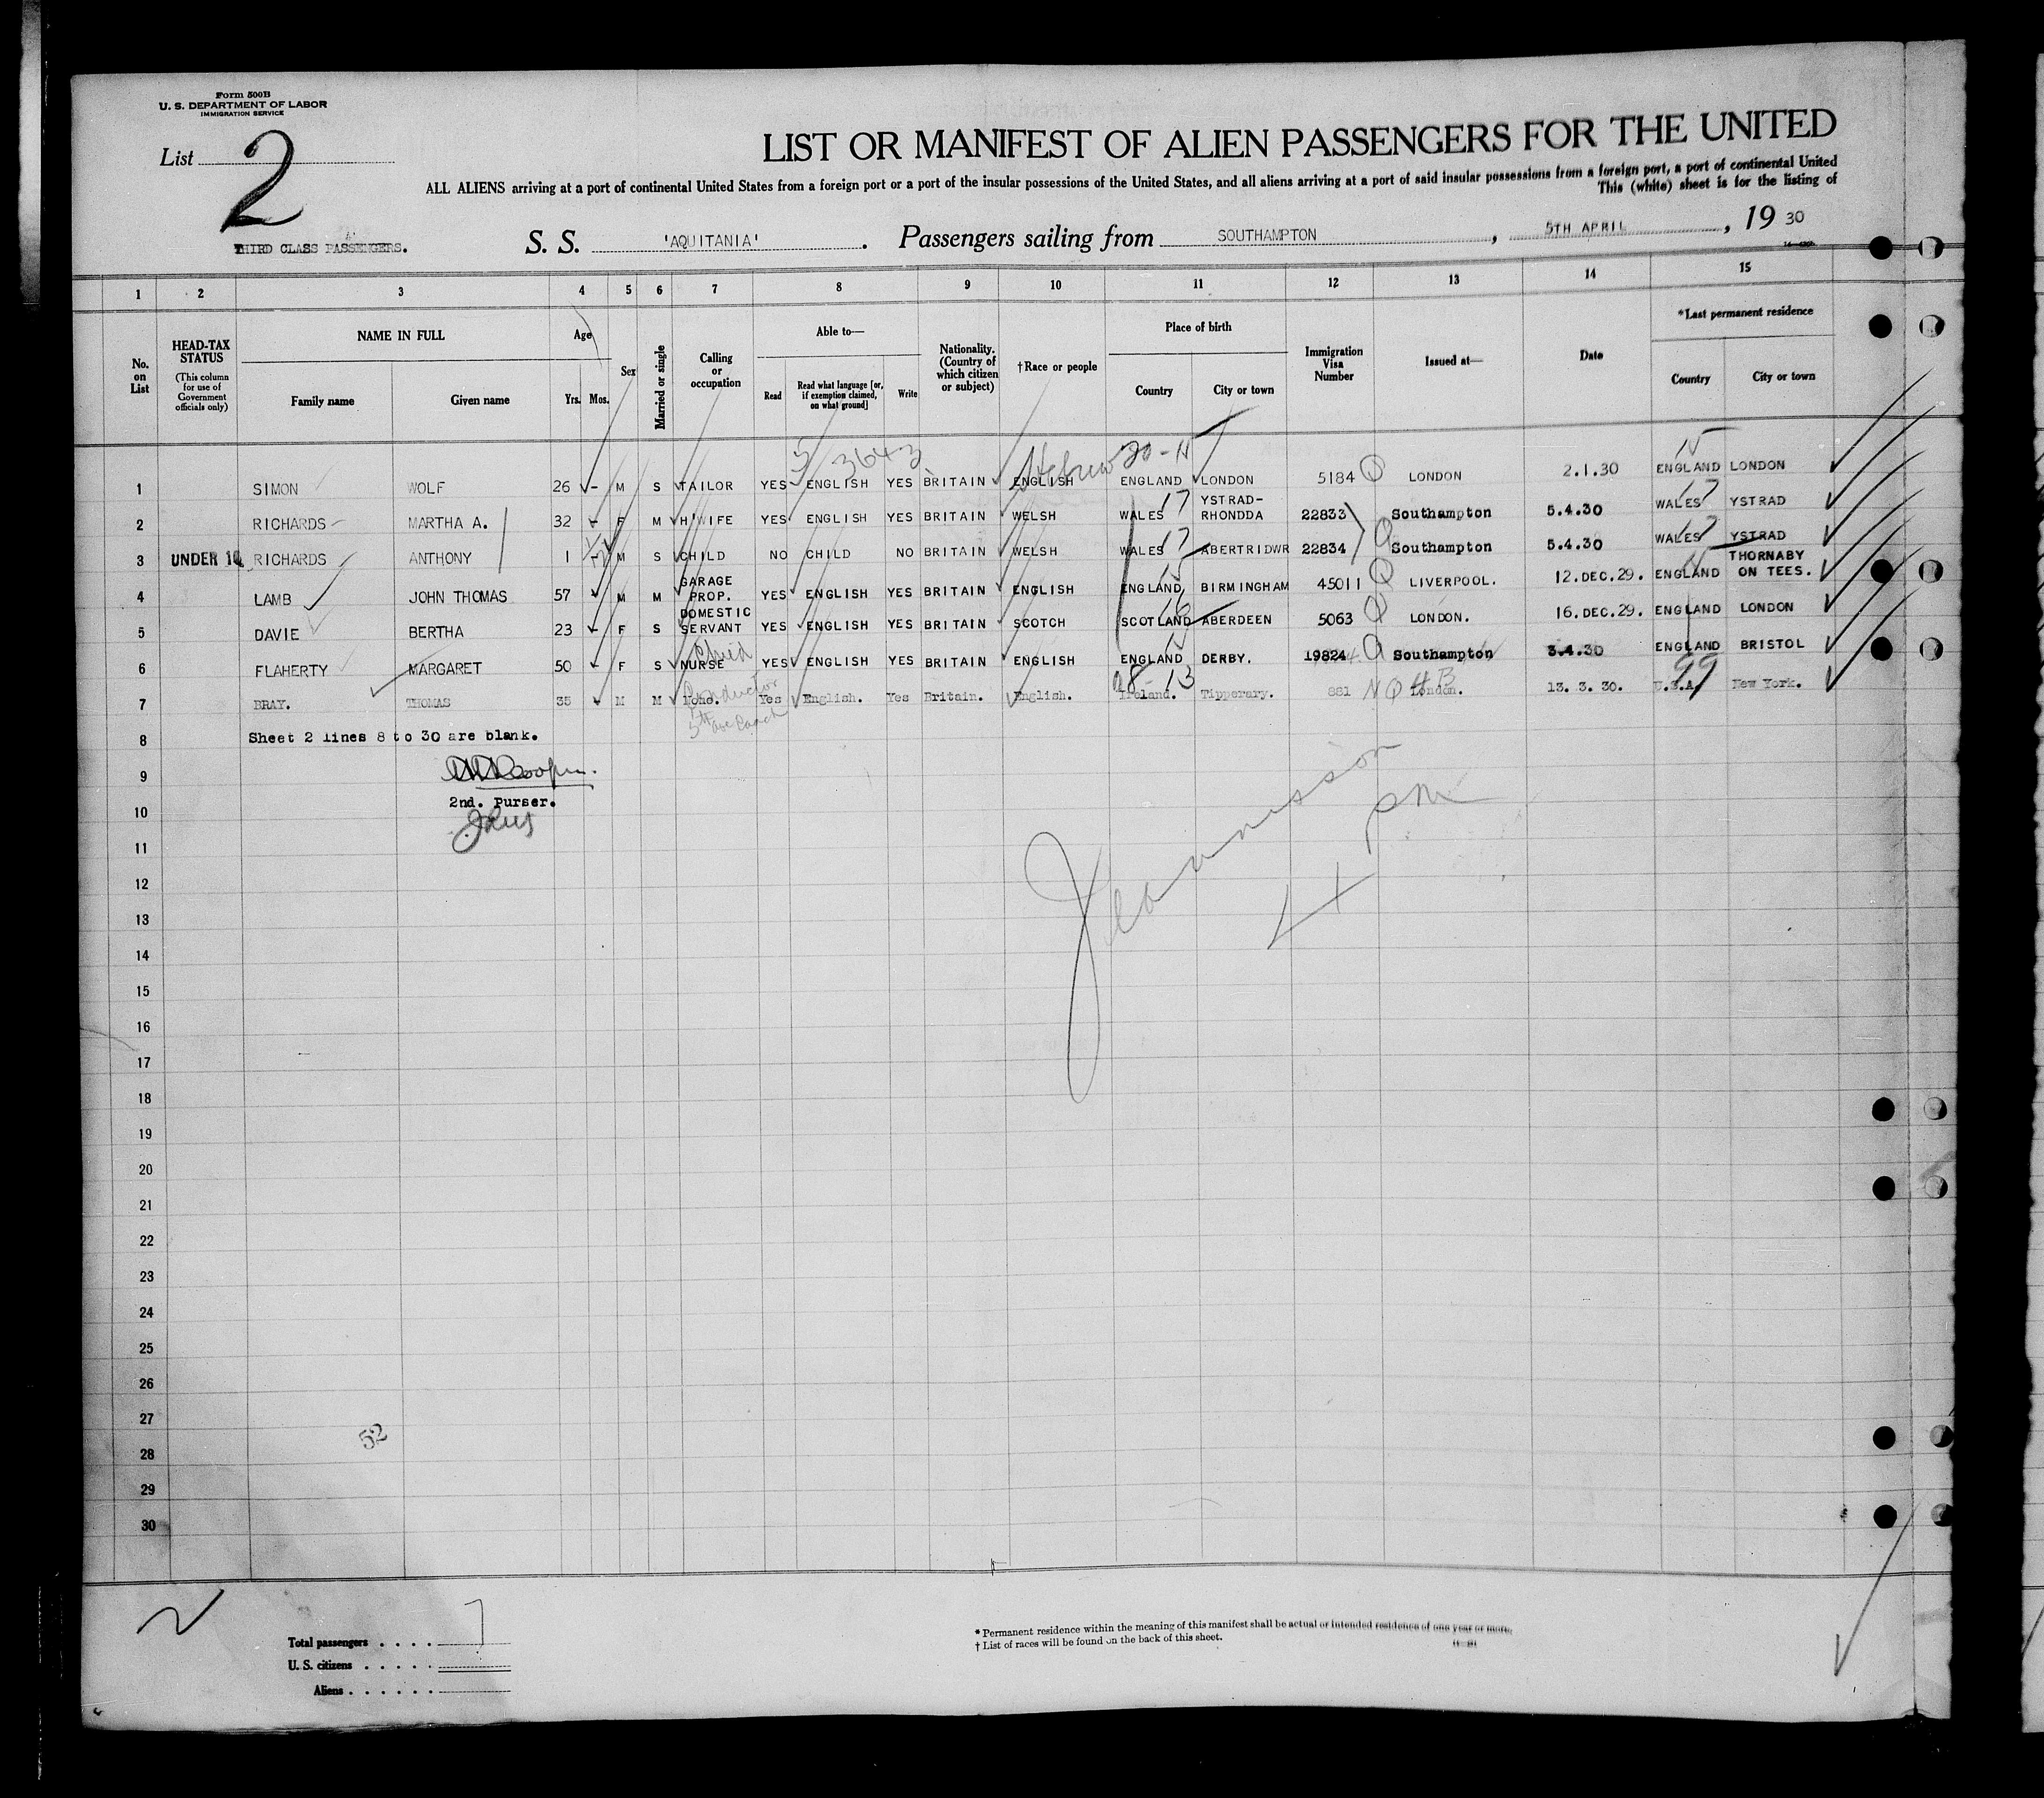 Form 500B
U. S. DEPARTMENT OF LABOR
IMMIGRATION SERVICE
List 2
LIST OR MANIFEST OF ALIEN PASSENGERS FOR THE UNITED
ALL ALIENS arriving at a port of continental United States from a foreign port or a port of the insular possessions of the United States, and all aliens arriving at a port of said insular possessions from a foreign port, a port of continental United
This (white) sheet is for the listing of
THIRD CLASS PASSENGERS.
S. S. 'AQUITANIA'. Passengers sailing from SOUTHAMPTON, 5TH APRIL, 19 30
1 2 3 4 5 6 7 8 9 10 11 12 13 14 15
No. on List
HEAD-TAX STATUS
(This column for use of Government officials only)
NAME IN FULL
Family name
Given name
Age
Yrs. Mos.
Sex
Married or single
Calling or occupation
Able to—
Read
Read what language [or, if exemption claimed, on what ground]
Write
Nationality. (Country of which citizen or subject)
†Race or people
Place of birth
Country
City or town
Immigration Visa Number
Issued at—
Date
*Last permanent residence
Country
City or town
3643
Hebrew 20-15 15
1 SIMON WOLF 26 - M S TAILOR YES ENGLISH YES BRITAIN ENGLISH ENGLAND LONDON 5184 LONDON 2.1.30 ENGLAND LONDON
2 RICHARDS MARTHA A. 32 - F M H'WIFE YES ENGLISH YES BRITAIN WELSH WALES 17 YSTRAD-RHONDDA 22833 Southampton 5.4.30 WALES 17 YSTRAD
3 UNDER 14 RICHARDS ANTHONY 1 - M S CHILD NO CHILD NO BRITAIN WELSH WALES 17 ABERTRIDWR 22834 Southampton 5.4.30 WALES 17 YSTRAD
4 LAMB JOHN THOMAS 57 - M M GARAGE PROP. YES ENGLISH YES BRITAIN ENGLISH ENGLAND BIRMINGHAM 45011 LIVERPOOL. 12.DEC.29. ENGLAND THORNABY ON TEES.
5 DAVIE BERTHA 23 - F S DOMESTIC SERVANT YES ENGLISH YES BRITAIN SCOTCH SCOTLAND 16 ABERDEEN 5063 LONDON. 16.DEC.29. ENGLAND LONDON
6 FLAHERTY MARGARET 50 - F S Child NURSE YES ENGLISH YES BRITAIN ENGLISH ENGLAND DERBY. 19824 Southampton 3.4.30 ENGLAND BRISTOL
7 BRAY. THOMAS 35 M M None. Conductor Yes English. Yes Britain. English. Ireland. Tipperary. 881 NQ 4B London. 13. 3. 30. U.S.A. 99 New York.
5th ave Coach
8 Sheet 2 lines 8 to 30 are blank.
9
2nd. Purser.
10
11
12
13
14
15
16
17
18
19
20
21
22
23
24
25
26
27
28
29
30
52
Total passengers . . . . 7
U. S. citizens . . . . .
Aliens . . . . . .
* Permanent residence within the meaning of this manifest shall be actual or intended residence of one year or more.
† List of races will be found on the back of this sheet.